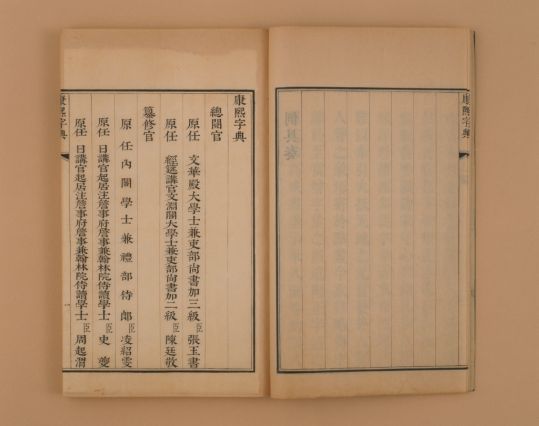 康熙字典
康熙字典
總閱官
原任 文華殿大學士兼吏部尚書加三級 臣 張玉書
原任 經筵講官文淵閣大學士兼吏部尚書加二級 臣 陳廷敬
纂修官
原任 內閣學士兼禮部侍郎 臣 凌紹雯
原任 日講官起居注詹事府詹事兼翰林院侍讀學士 臣 史夔
原任 日講官起居注詹事府詹事兼翰林院侍讀學士 臣 周起渭
康熙字典